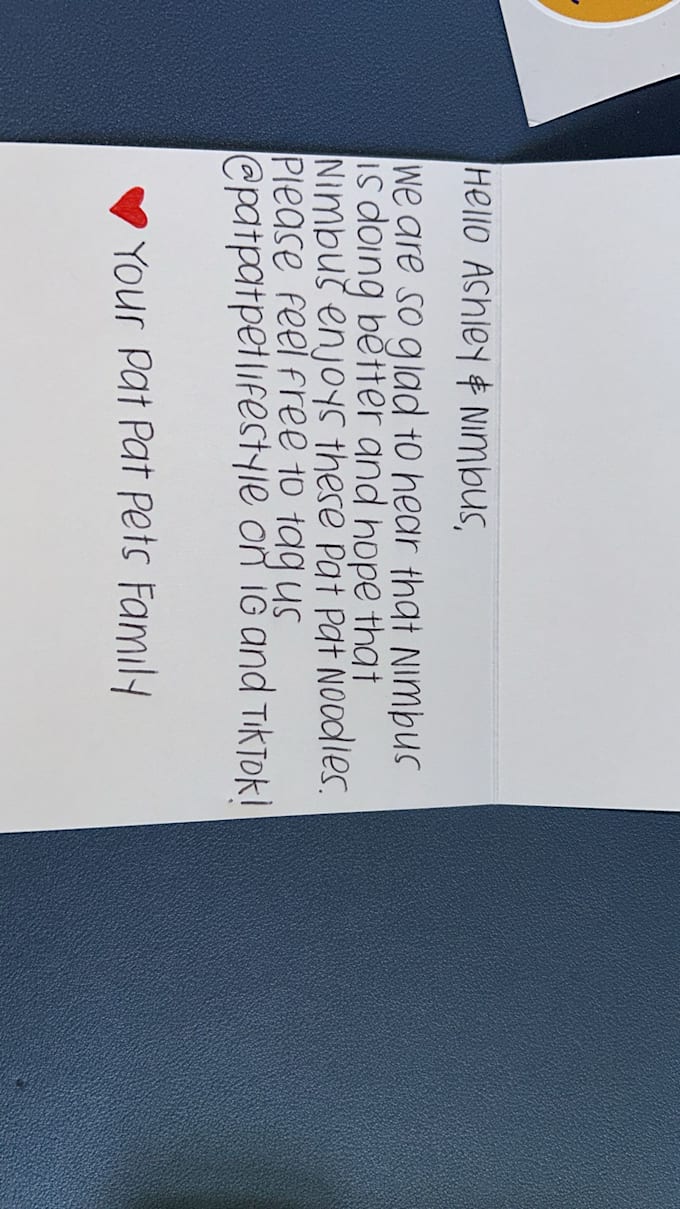 Hello Ashley & Nimbus,
We are so glad to hear that Nimbus
is doing better and hope that
Nimbus enjoys these Pat Pat Noodles.
Please feel free to tag us
@patpatpetlifestyle on IG and TikTok!
♥ Your Pat Pat Pets Family